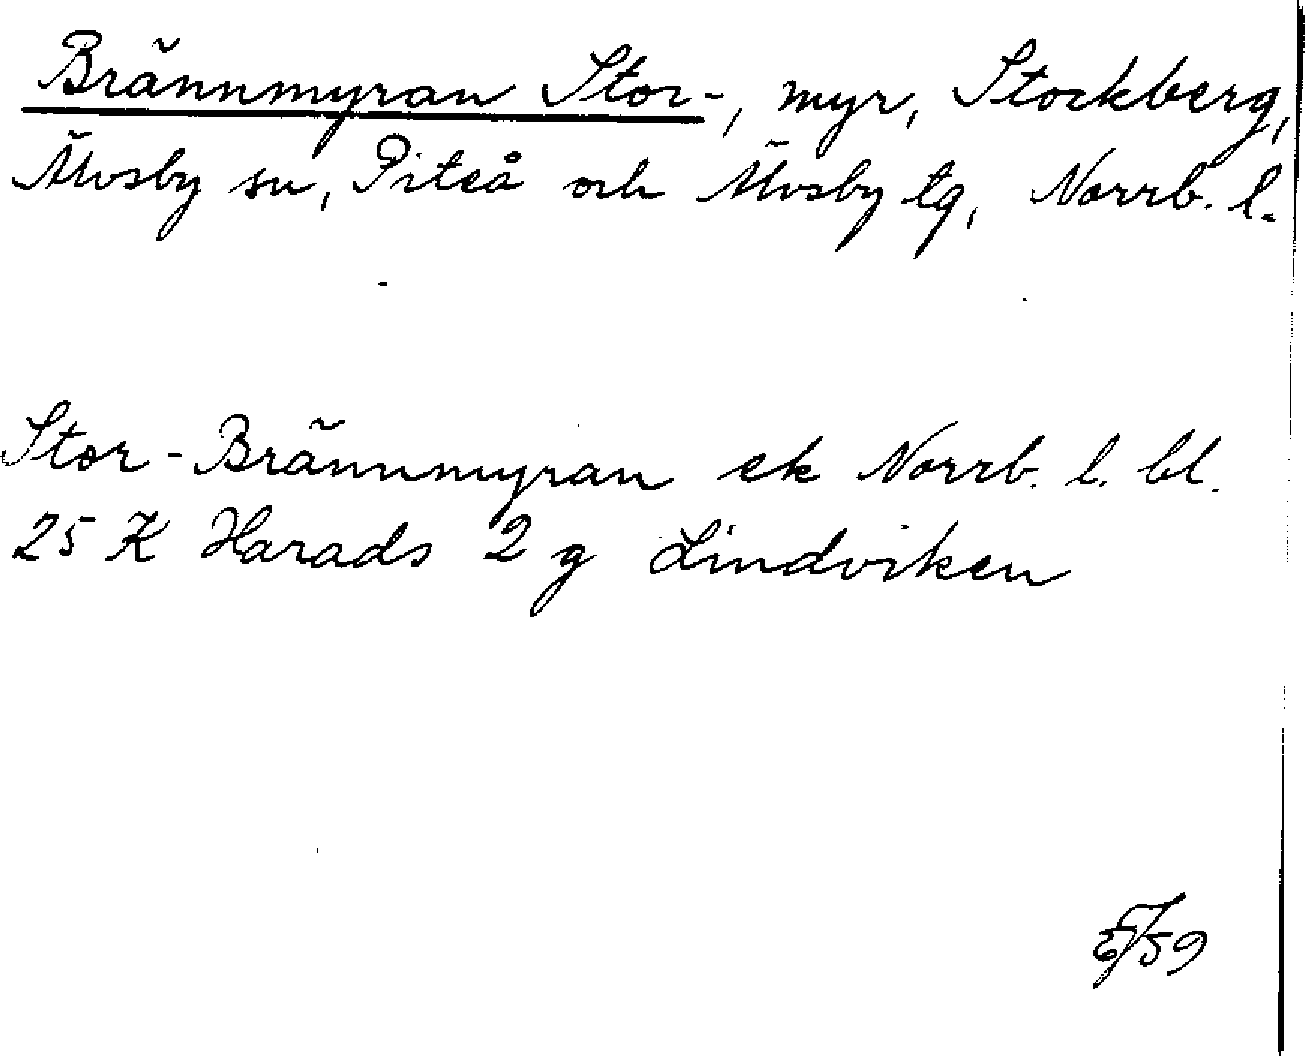 Brännmyran Stor-, myr, Stockberg,
Älvsby sn, Piteå och Älvsby tg, Norrb. l.
Stor-Brännmyran ek Norrb. l. bl.
25 K Harads 2 g Lindviken
/59